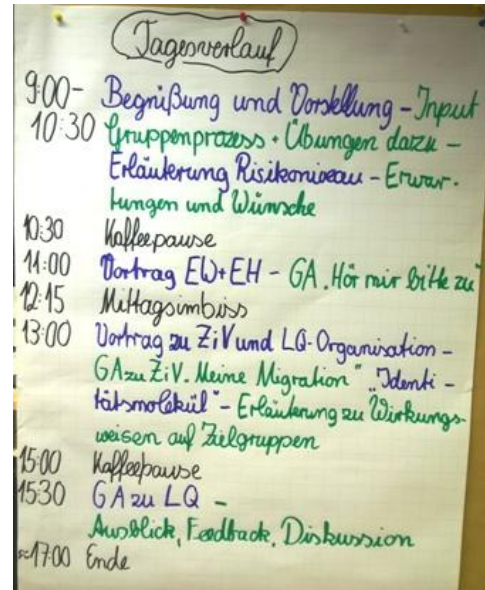 Tagesverlauf
9:00- Begrüßung und Vorstellung - Input
10:30 Gruppenprozess + Übungen dazu -
Erläuterung Risikoniveau - Erwar-
tungen und Wünsche
10:30 Kaffeepause
11:00 Vortrag EW+EH - GA „Hör mir bitte zu"
12:15 Mittagsimbiss
13:00 Vortrag zu ZiV und LQ-Organisation -
GA zu ZiV „Meine Migration" „Identi-
tätsmolekül" - Erläuterung zu Wirkungs-
weisen auf Zielgruppen
15:00 Kaffeepause
15:30 GA zu LQ -
Ausblick, Feedback, Diskussion
≈17:00 Ende